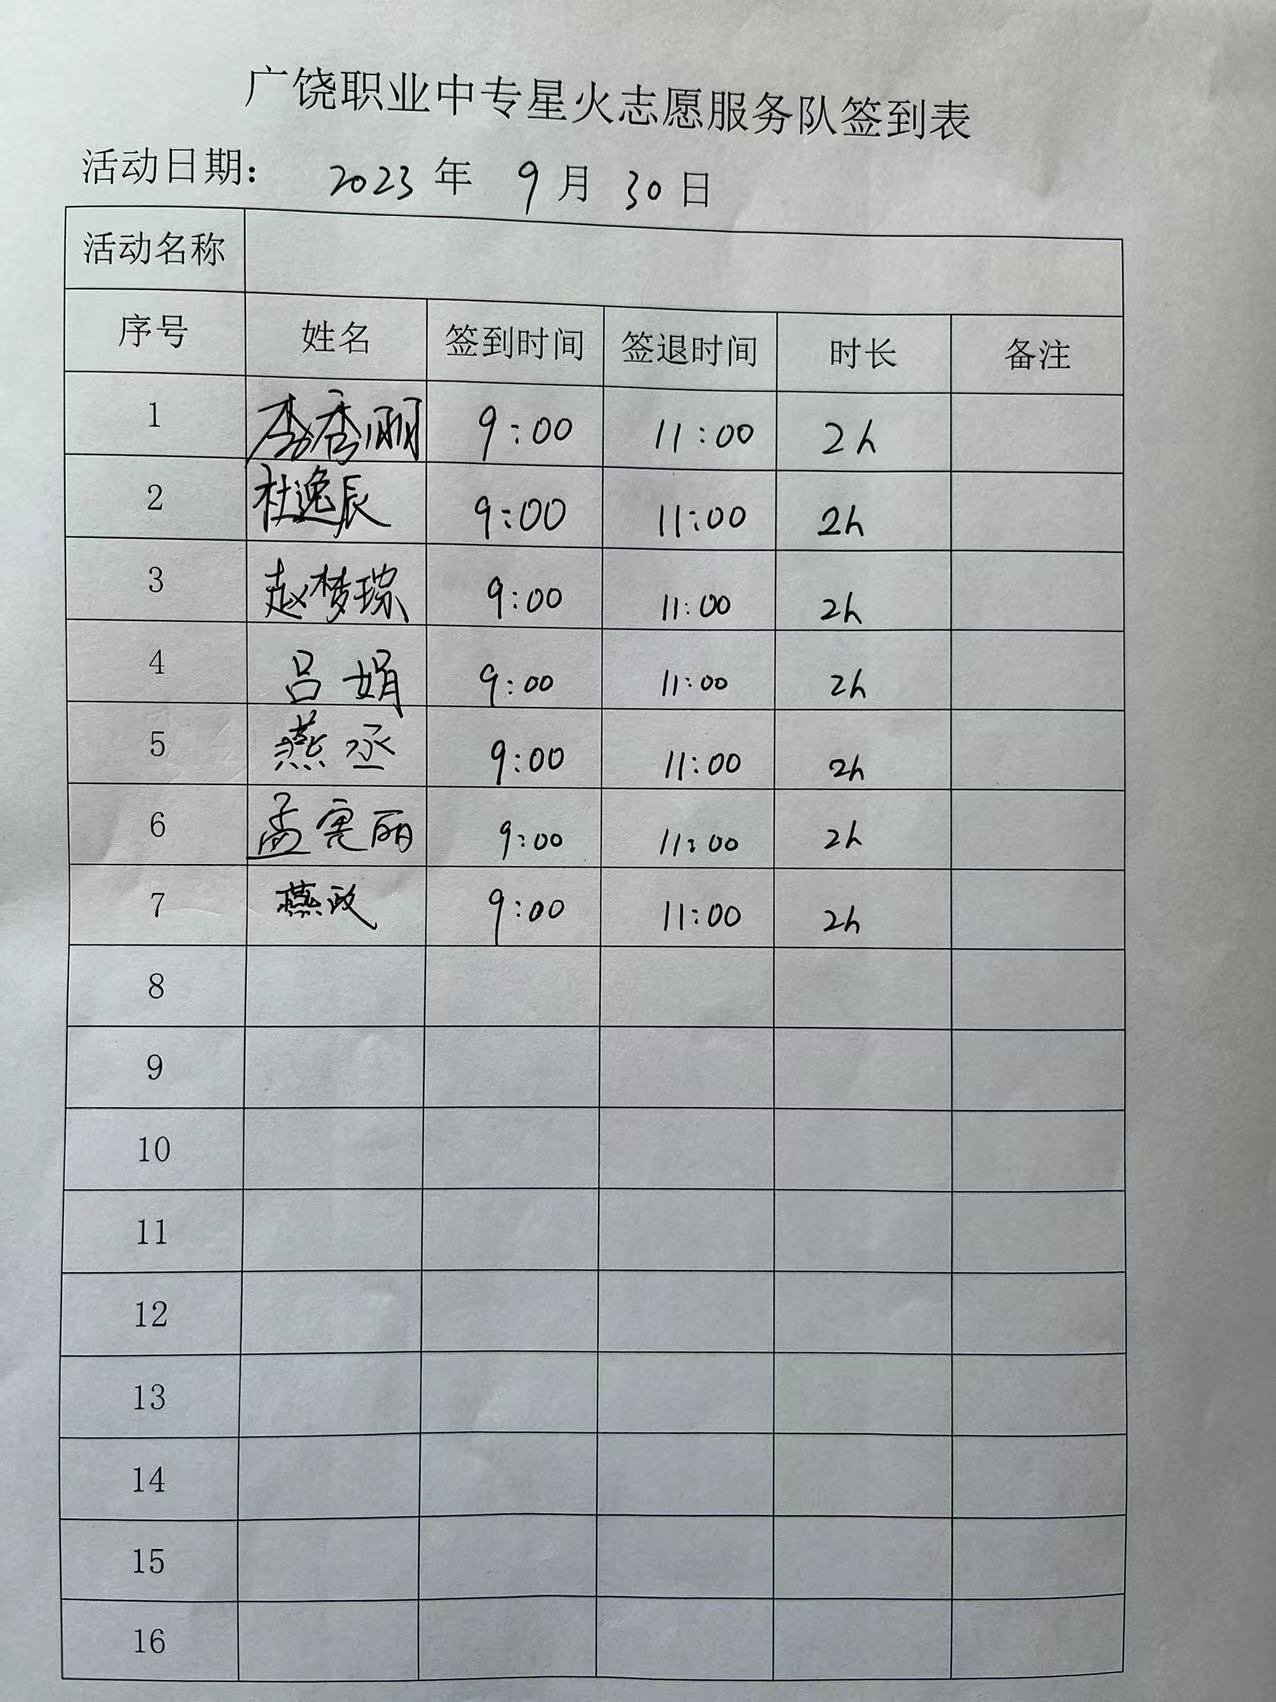 广饶职业中专星火志愿服务队签到表
活动日期： 2023 年 9 月 30 日
活动名称
序号 姓名 签到时间 签退时间 时长 备注
1 李秀丽 9:00 11:00 2h
2 杜逸辰 9:00 11:00 2h
3 赵梦琮 9:00 11:00 2h
4 吕娟 9:00 11:00 2h
5 燕丞 9:00 11:00 2h
6 孟 丽 9:00 11:00 2h
7 燕政 9:00 11:00 2h
8
9
10
11
12
13
14
15
16